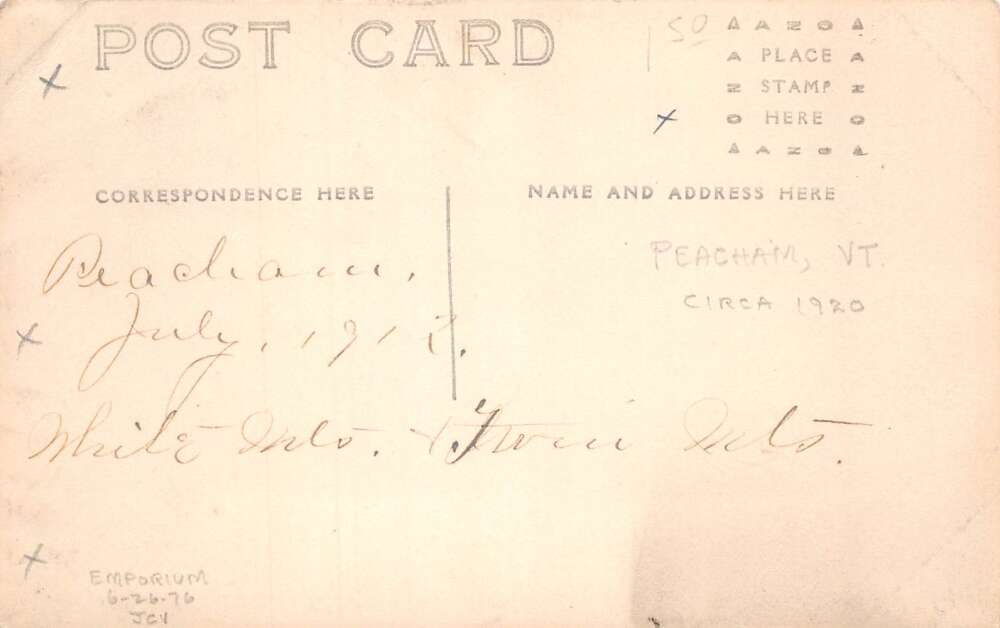 POST CARD
50
AZOA
A PLACE A
Z STAMP Z
O HERE O
AZOA
CORRESPONDENCE HERE
NAME AND ADDRESS HERE
Peacham,
July, 1912.
White Mts. + Twin Mts.
PEACHAM, VT.
CIRCA 1920
EMPORIUM
6-26-76
JCV